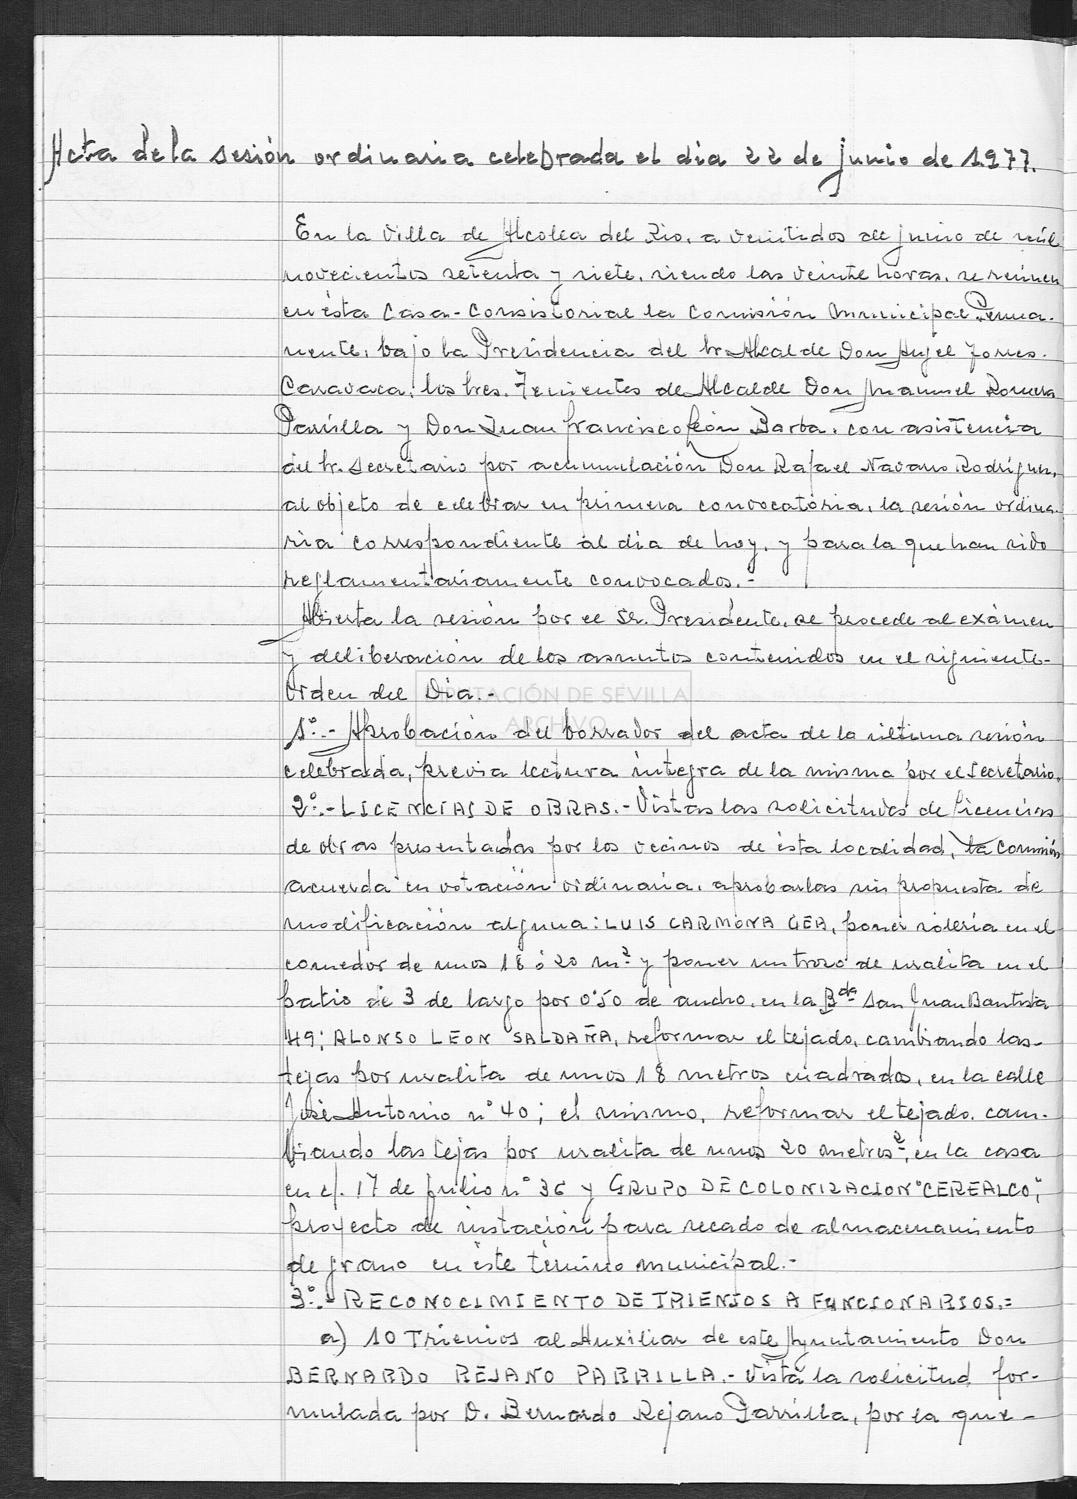 Acta de la sesión ordinaria celebrada el dia 22 de junio de 1.977.
En la Villa de Alcolea del Rio, a veintidos de junio de mil
novecientos setenta y siete, siendo las veinte horas, se reunen
en ésta Casa-Consistorial la Comisión Municipal Perma-
nente, bajo la Presidencia del Sr. Alcalde Don Angel Torres
Caravaca, los Sres. Tenientes de Alcalde Don Manuel Romera
Parrilla y Don Juan Francisco León Barba, con asistencia
del Sr. Secretario por acumulación Don Rafael Navarro Rodriguez,
al objeto de celebrar en primera convocatória, la sesión ordina-
ria correspondiente al dia de hoy, y para la que han sido
reglamentariamente convocados.-
Abierta la sesión por el Sr. Presidente, se procede al exámen
y deliberación de los asuntos contenidos en el siguiente-
Orden del Dia.-
DIPUTACIÓN DE SEVILLA
ARCHIVO
1º.- Aprobación del borrador del acta de la última sesión
celebrada, previa lectura integra de la misma por el Secretario.
2º.- LICENCIAS DE OBRAS.- Vistas las solicitudes de licencias
de obras presentadas por los vecinos de ésta localidad, la Comisión
acuerda en votación ordinaria, aprobarlas sin propuesta de
modificación alguna: LUIS CARMONA GEA, poner soleria en el
comedor de unos 18 ó 20 m² y poner un trozo de uralita en el
patio de 3 de largo por 0'50 de ancho, en la Bda San Juan Bautista
49; ALONSO LEON SALDAÑA, reformar el tejado, cambiando las-
tejas por uralita de unos 18 metros cuadrados, en la calle
José Antonio nº 40; el mismo, reformar el tejado, cam-
biando las tejas por uralita de unos 20 metros², en la casa
en c/. 17 de Julio nº 36 y GRUPO DE COLONIZACION "CEREALCO",
proyecto de instación para secado de almacenamiento
de grano en éste término municipal.-
3º.- RECONOCIMIENTO DE TRIENIOS A FUNCIONARIOS.=
a) 10 Trienios al Auxiliar de este Ayuntamiento Don
BERNARDO REJANO PARRILLA.- Vista la solicitud for-
mulada por D. Bernardo Rejano Parrilla, por la que-